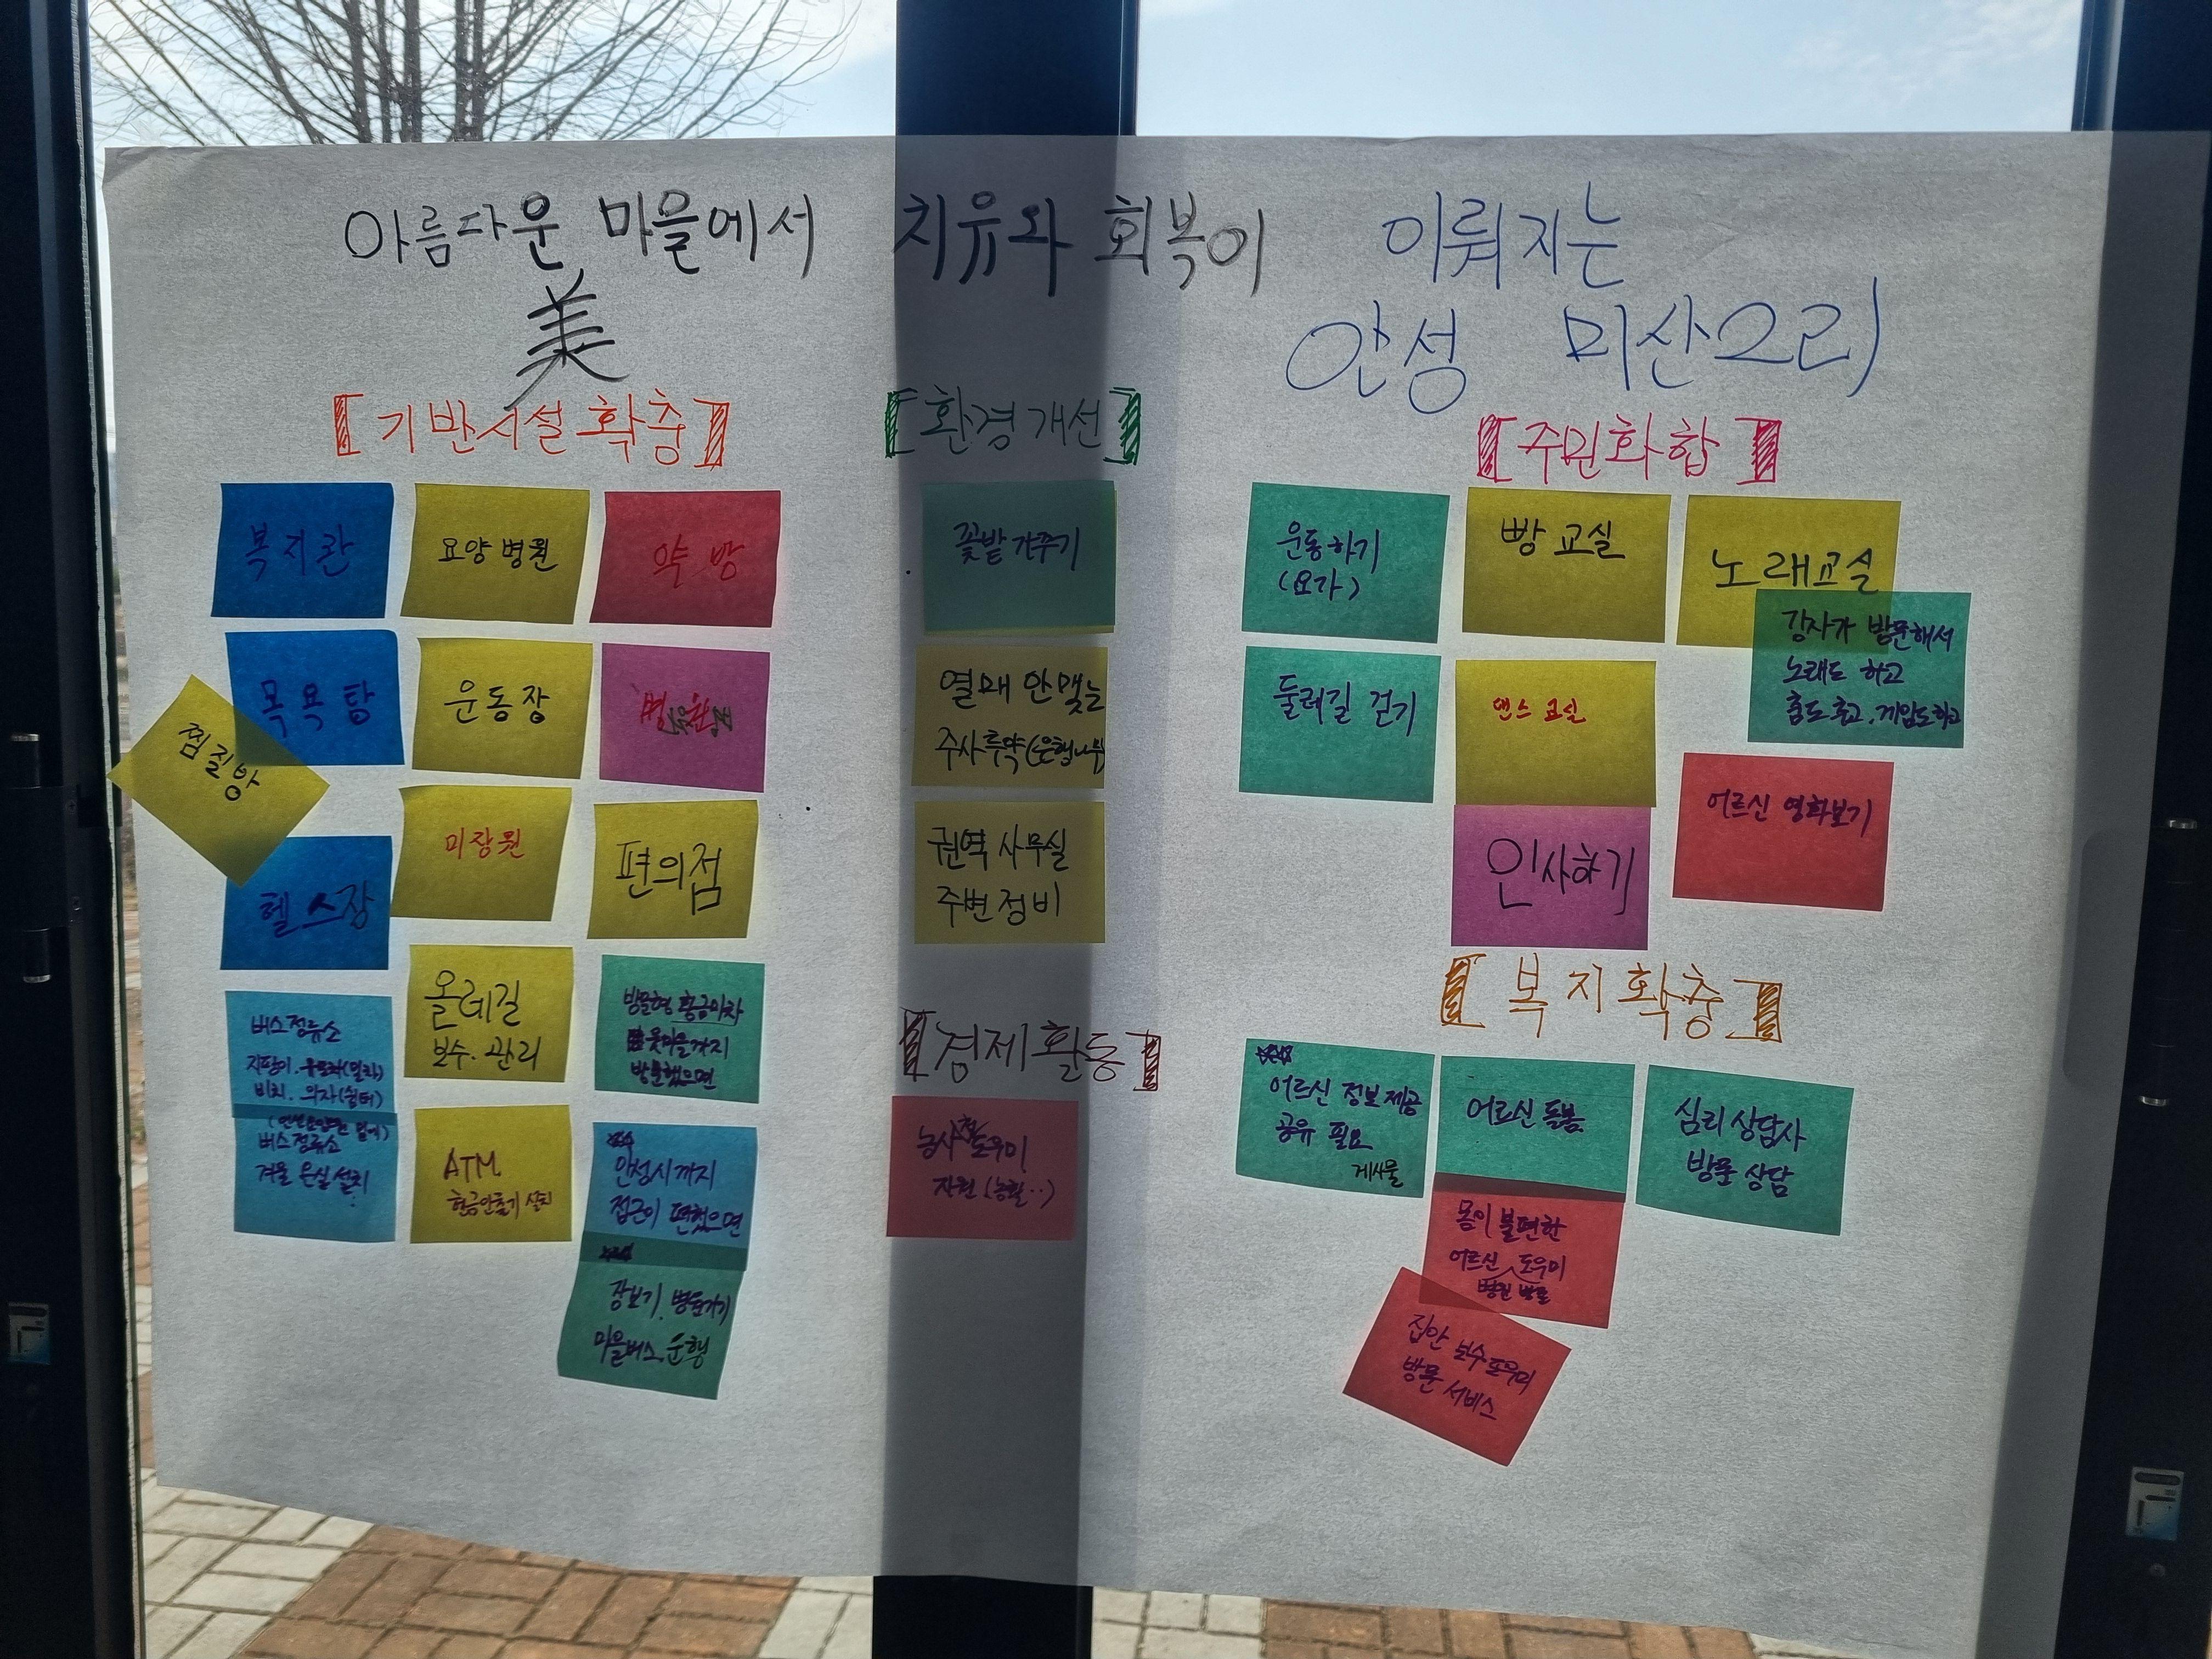 아름다운 마을에서 치유와 회복이 이뤄지는
美
안성 미산오리
[기반시설확충]
복지관
요양병원
약방
목욕탕
찜질방
운동장
헬스장
미장원
편의점
버스정류소
비치. 의자(쉼터)
버스정류소
겨울 온실설치
올레길
보수. 관리
방문형 황금마차
윗마을까지
방문했으면
ATM
현금인출기 설치
안성시까지
접근이 편했으면
장보기. 병문가기
마을버스. 운행
[환경개선]
꽃밭 가꾸기
열매 안맺는
주사투약(은행나무)
권역 사무실
주변정비
[경제활동]
도우미
지원 (농활..)
[주민화합]
운동하기
(요가)
빵 교실
노래교실
강사가 방문해서
노래도 하고
춤도 추고. 게임도하고
둘레길 걷기
댄스 교실
어르신 영화보기
인사하기
[복지확충]
어르신 정보제공
공유 필요
게시물
어르신 돌봄
심리상담사
방문 상담
몸이 불편한
어르신 도우미
병원 방문
집안 보수도우미
방문 서비스